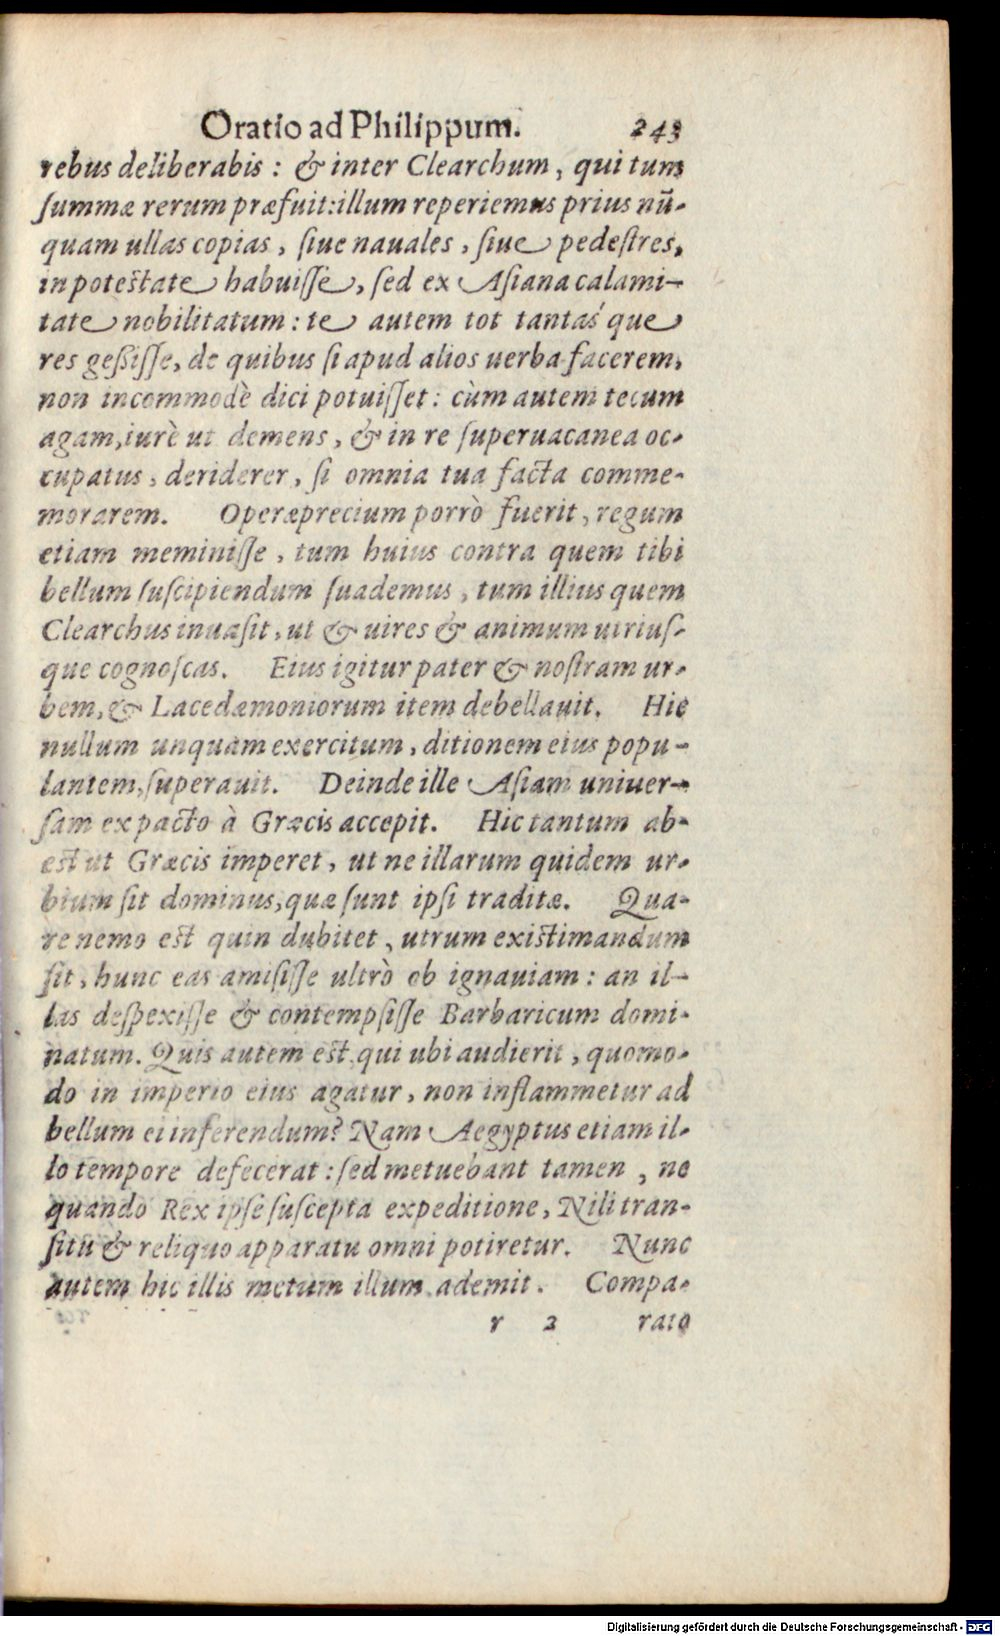 Oratio ad Philippum. 243
rebus deliberabis: & inter Clearchum, qui tum
ſummæ rerum præfuit: illum reperiemus prius nū-
quam ullas copias, ſiue nauales, ſiue pedeſtres,
in poteſtate habuiſſe, ſed ex Aſiana calami-
tate nobilitatum: te autem tot tantás que
res geßiſſe, de quibus ſi apud alios uerba facerem,
non incommodè dici potuiſſet: cùm autem tecum
agam, iurè ut demens, & in re ſuperuacanea oc-
cupatus, deriderer, ſi omnia tua facta comme-
morarem. Operæprecium porrò fuerit, regum
etiam meminiſſe, tum huius contra quem tibi
bellum ſuſcipiendum ſuademus, tum illius quem
Clearchus inuaſit, ut & uires & animum utriuſ-
que cognoſcas. Eius igitur pater & noſtram ur-
bem, & Lacedæmoniorum item debellauit. Hic
nullum unquam exercitum, ditionem eius popu-
lantem, ſuperauit. Deinde ille Aſiam uniuer-
ſam ex pacto à Græcis accepit. Hic tantum ab-
eſt ut Græcis imperet, ut ne illarum quidem ur-
bium ſit dominus, quæ ſunt ipſi traditæ. Qua-
re nemo eſt quin dubitet, utrum exiſtimandum
ſit, hunc eas amiſiſſe ultrò ob ignauiam: an il-
las deſpexiſſe & contempſiſſe Barbaricum domi-
natum. Quis autem eſt, qui ubi audierit, quomo-
do in imperio eius agatur, non inflammetur ad
bellum ei inferendum? Nam Aegyptus etiam il-
lo tempore defecerat: ſed metuebant tamen, ne
quando Rex ipſe ſuſcepta expeditione, Nili tran-
ſitu & reliquo apparatu omni potiretur. Nunc
autem hic illis metum illum ademit. Compa-
r 2 rato
Digitalisierung gefördert durch die Deutsche Forschungsgemeinschaft - DFG